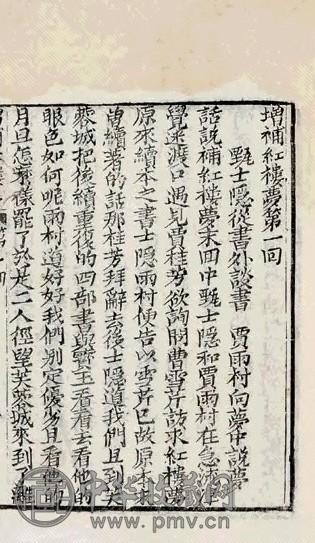 增補紅樓夢第一回
甄士隱從書外談書 賈雨村向夢中說夢
話說補紅樓夢末回中甄士隱和賈雨村在急流津
覺迷渡口遇見賈桂芳欲詢問曹雪芹訪求紅樓夢
原來續本之書士隱雨村便告以雪芹已故原本
曾續著的話那桂芳拜辭去後士隱道我們且到芙
蓉城把後續重復的四部書與寶玉看看去看他的
眼色如何呢雨村道好好我們別定優劣且看他的
月旦怎麼樣罷了於是二人徑望芙蓉城來到了離
中华收藏网
www.pmv.cn